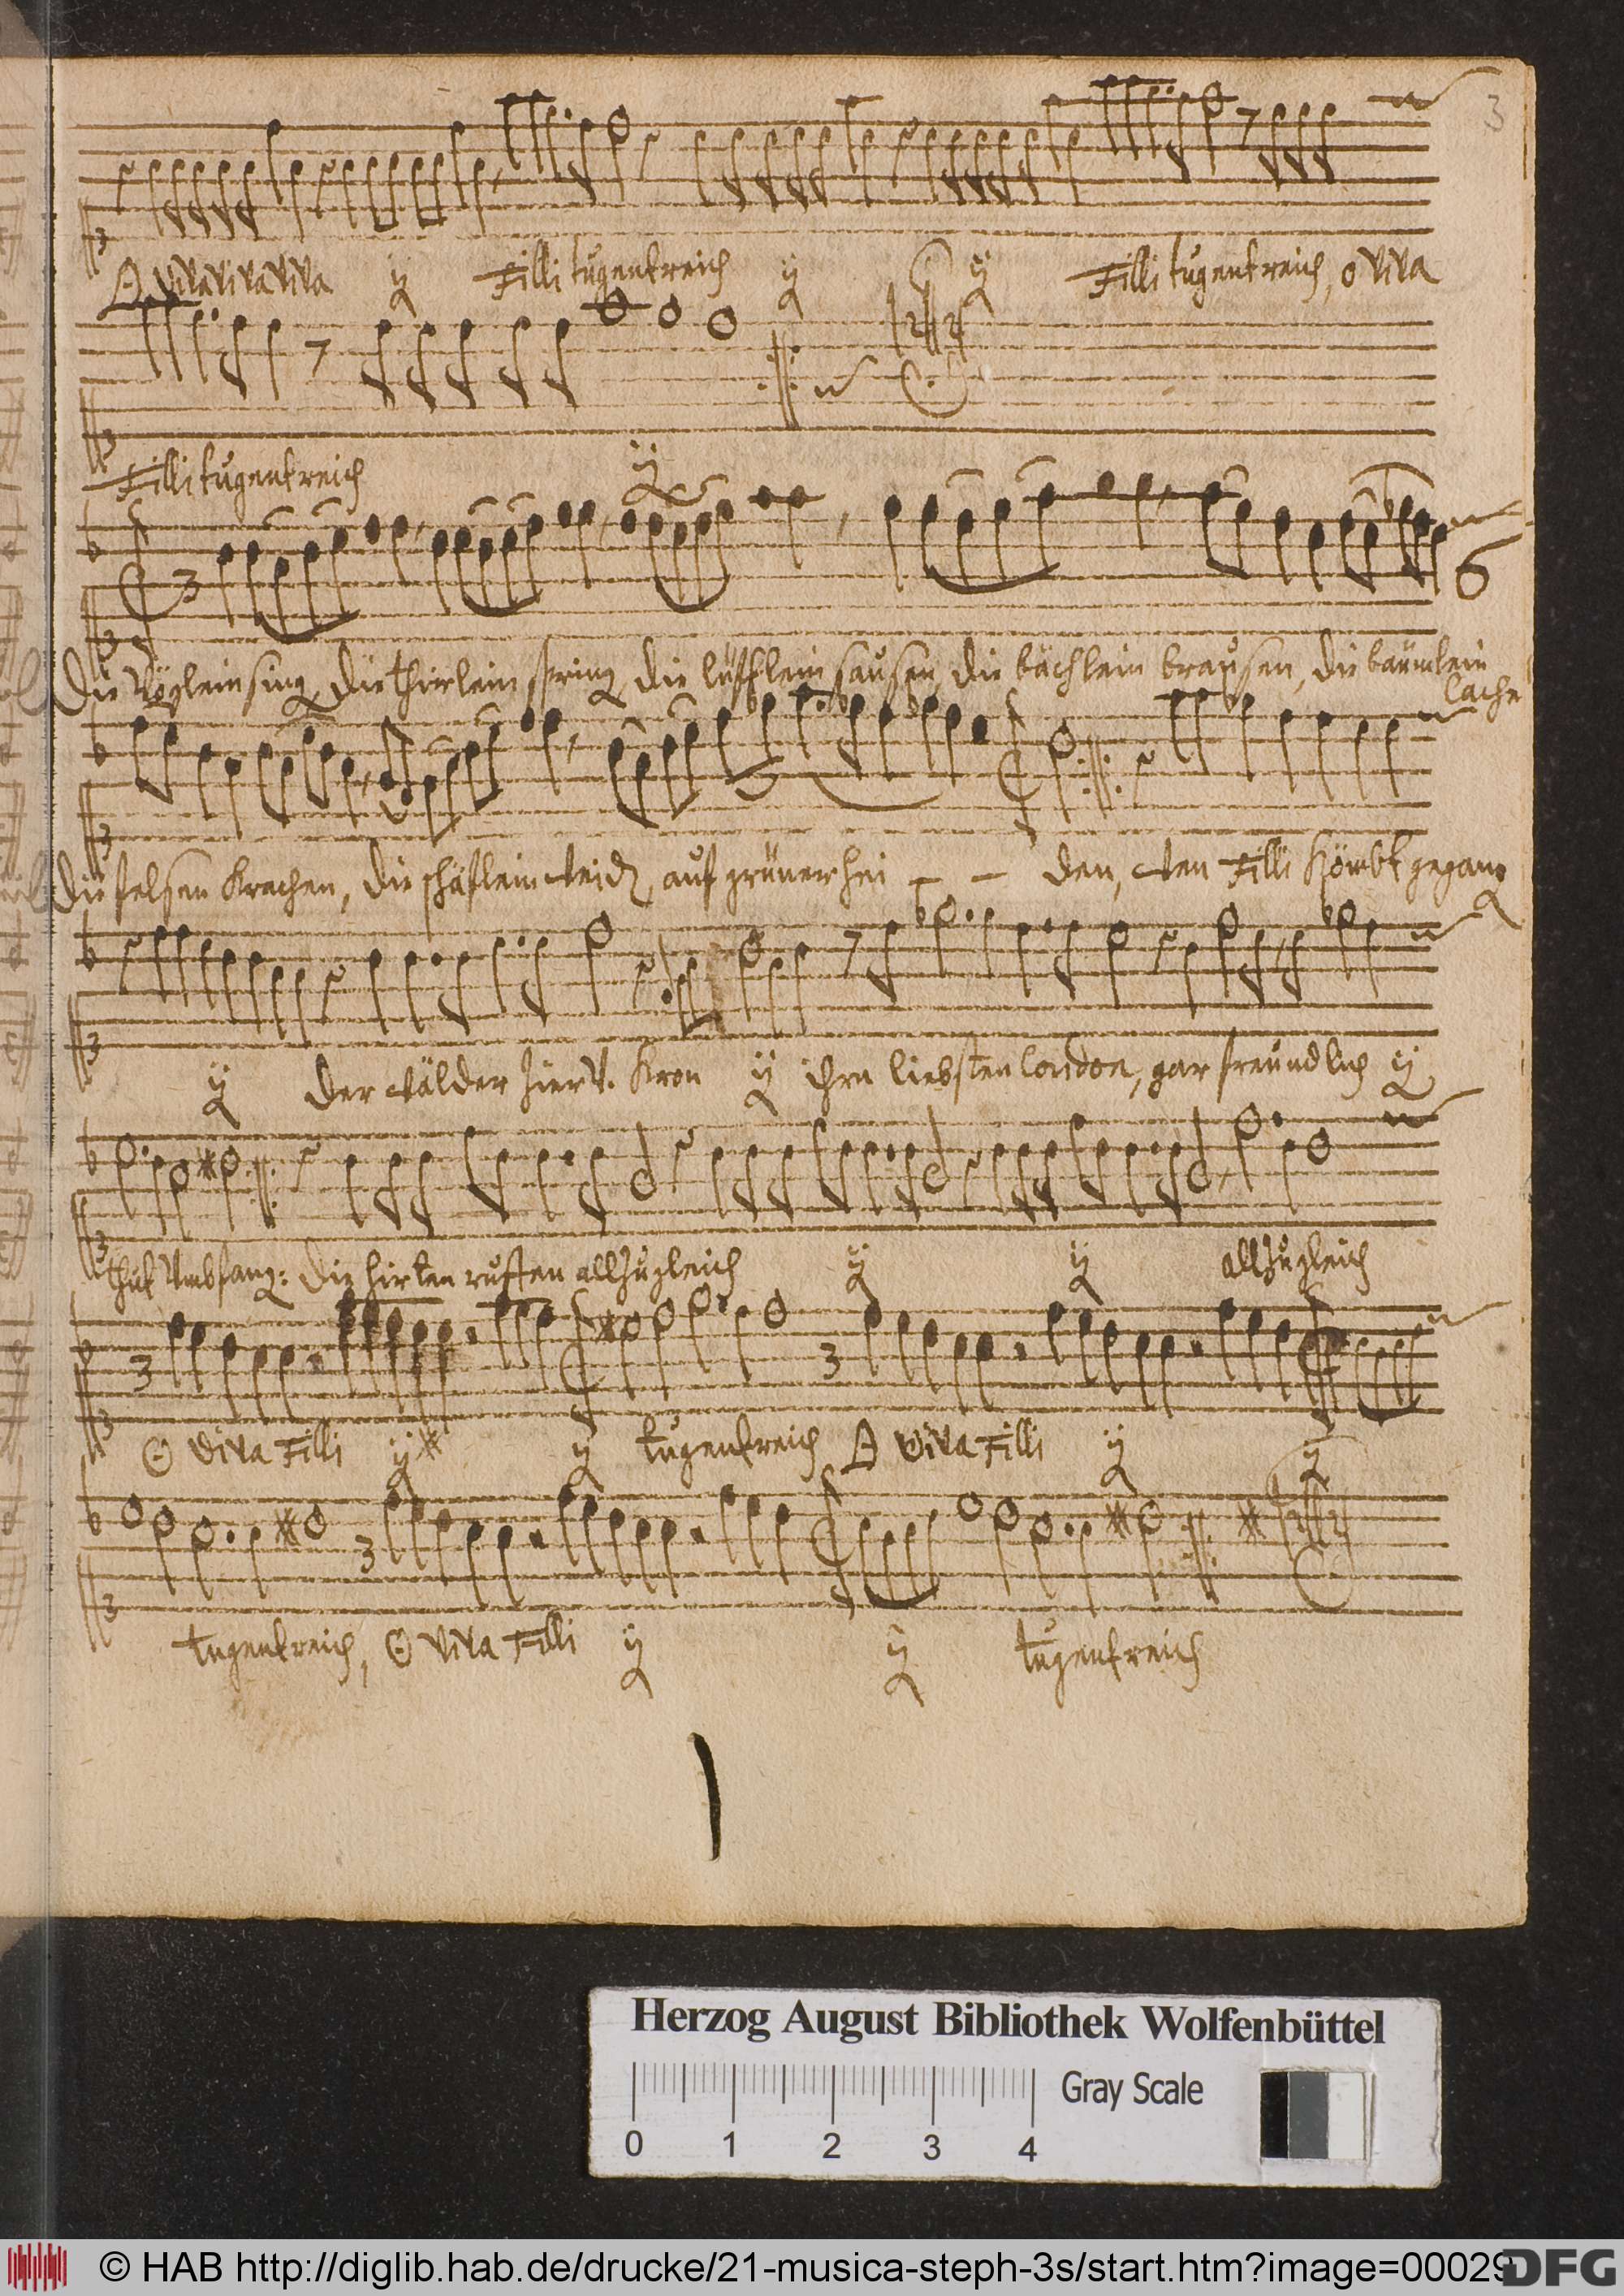 3
O viva viva viva ij Filli tugentreich ij ij Filli tugentreich, o viva
Filli tugentreich ij
6
Die Vöglein sing, die thierlein spring, die lüfftlein sausen, die bächlein brausen, die bäumlein
lache
die felsen krachen, die schäflein weid, auf grüner hei - - den, wen Filli kömbt gegang
ij der wälder Kron ij ihrn liebsten Coridon, gar freundlich ij
thut Umbfang: Die hirten rufften allzugleich ij ij allzugleich
O viva Filli ij ij tugentreich O viva Filli ij ij
tugentreich, O viva Filli ij ij tugentreich
Herzog August Bibliothek Wolfenbüttel
Gray Scale
0 1 2 3 4
© HAB http://diglib.hab.de/drucke/21-musica-steph-3s/start.htm?image=00029
DFG